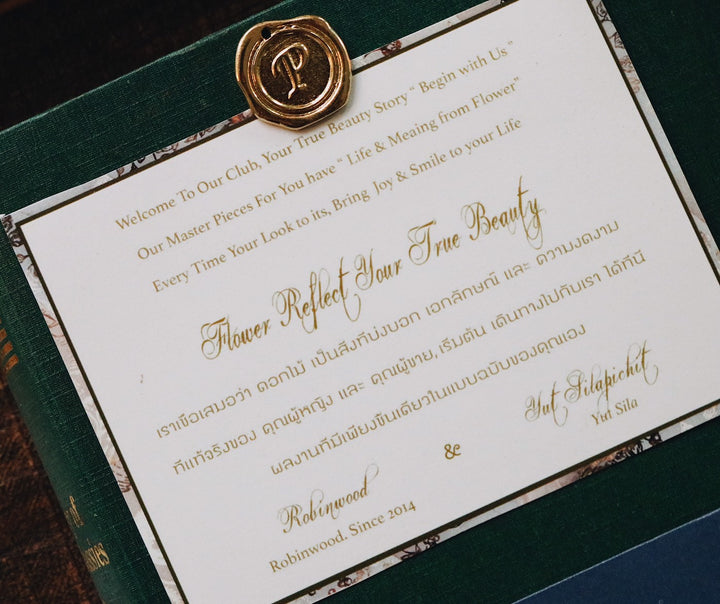 P
Welcome To Our Club, Your True Beauty Story “ Begin with Us ”
Our Master Pieces For You have “ Life & Meaing from Flower”
Every Time Your Look to its, Bring Joy & Smile to your Life
Flower Reflect Your True Beauty
เราเชื่อเสมอว่า ดอกไม้ เป็นสิ่งที่บ่งบอก เอกลักษณ์ และ ความงดงาม
ที่แท้จริงของ คุณผู้หญิง และ คุณผู้ชาย, เริ่มต้น เดินทางไปกับเรา ได้ที่นี่
ผลงานที่มีเพียงชิ้นเดียวในแบบฉบับของคุณเอง
Robinwood
Robinwood. Since 2014
&
Yut Silapichit
Yut Sila
of